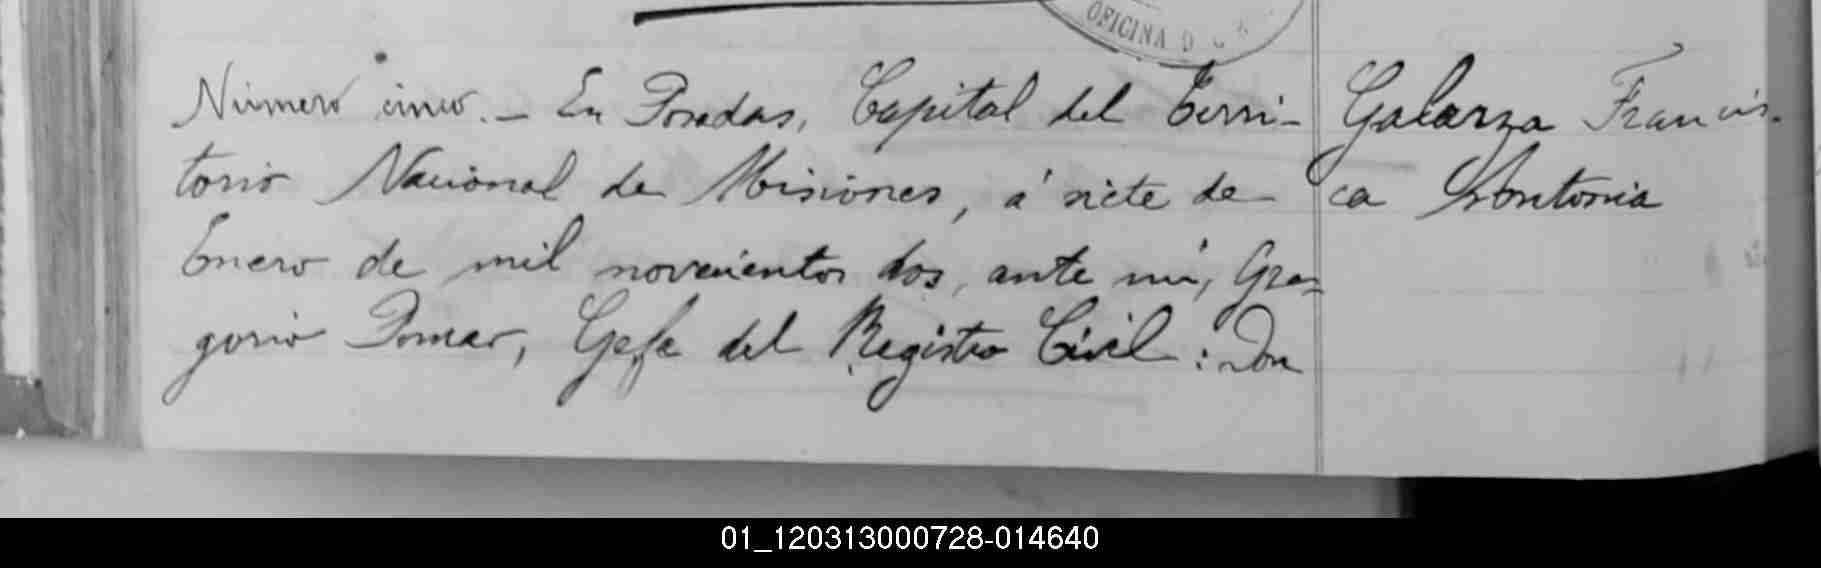 OFICINA D
Número cinco. — En Posadas, Capital del Terri-
torio Nacional de Misiones, á siete de
Enero de mil novecientos dos, ante mí, Gre-
gorio Pomar, Gefe del Registro Civil: Don
Galarza Francis-
ca Antonia
01_120313000728-014640